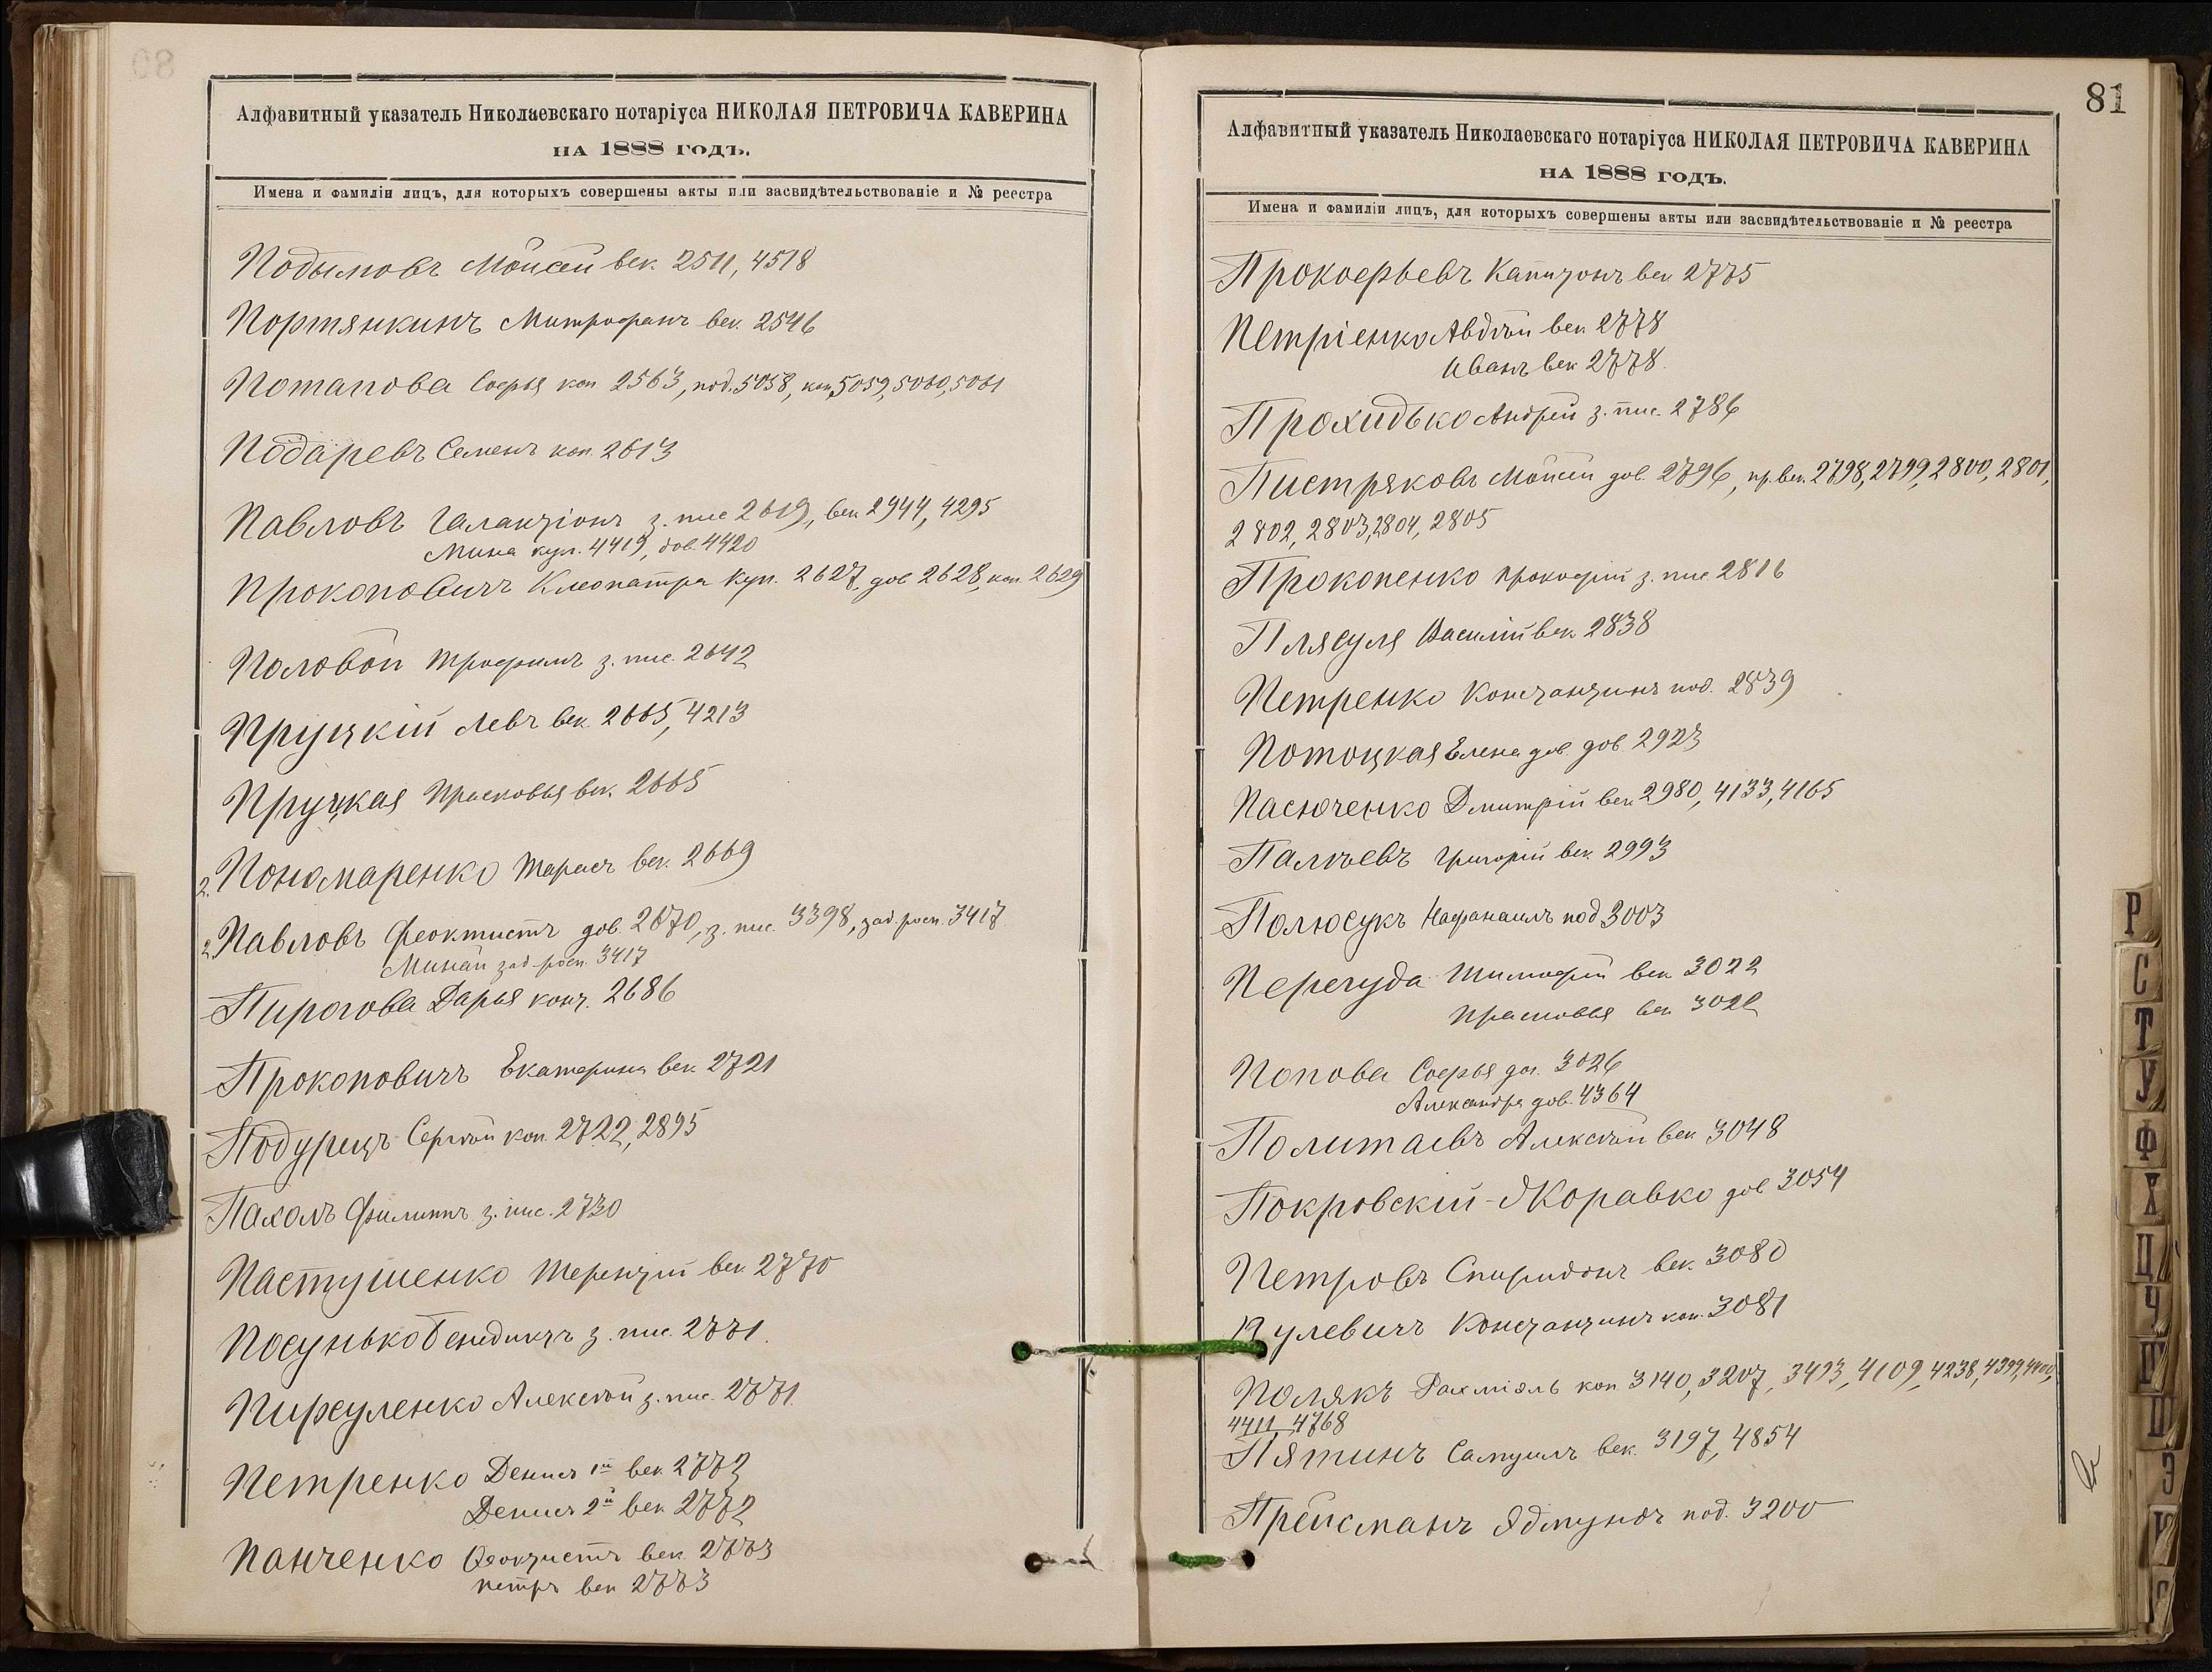 Алфавитный указатель Николаевскаго нотаріуса НИКОЛАЯ ПЕТРОВИЧА КАВЕРИНА
НА 1888 ГОДЪ.
Имена и фамиліи лицъ, для которыхъ совершены акты или засвидѣтельствованіе и № реестра
Подымовъ Моисей век. 2511, 4518
Портянкинъ Митрофанъ век. 2546
Потапова Софья коп 2563, под. 5058, коп. 5059, 5060, 5061
Подаревъ Семенъ коп. 2613
Павловъ Галактіонъ з. пис 2619, век 2944, 4295
Мина куп. 4419, дов. 4420
Прокоповичъ Клеопатра куп. 2627, дов 2628, коп. 2629
Половой Трофимъ з. пис. 2642
Пруцкій Левъ век. 2665, 4213
Пруцкая Прасковья век. 2665
2. Пономаренко Тарасъ век. 2669
2. Павловъ Феоктистъ дов. 2670, з. пис. 3398, зад. росп. 3417
Минай зад. росп. 3417
Пирогова Дарья конт. 2686
Прокоповичъ Екатерина век. 2721
Подурецъ Сергѣй коп. 2722, 2895
Пахолъ Филиппъ з. пис. 2730
Пастушенко Терентій век 2770
Посунько Бенедиктъ з. пис. 2771.
Пирсуленко Алексѣй з. пис. 2771.
Петренко Денисъ 1й век 2772
Денисъ 2й век 2772
Панченко Феоктистъ век. 2773
Петръ век 2773
81
Алфавитный указатель Николаевскаго нотаріуса НИКОЛАЯ ПЕТРОВИЧА КАВЕРИНА
НА 1888 ГОДЪ.
Имена и фамиліи лицъ, для которыхъ совершены акты или засвидѣтельствованіе и № реестра
Прокофьевъ Капитонъ век 2775
Петріенко Авдѣй век 2778
Иванъ век 2778.
Прохидько Андрей з. пис. 2786
Пистряковъ Моисей дов. 2796, пр. век. 2798, 2799, 2800, 2801,
2802, 2803, 2804, 2805
Прокопенко Прокофій з. пис 2816
Плясуля Василій век 2838
Петренко Константинъ под. 2839
Потоцкая Елена дов дов 2923
Пасюченко Дмитрій век 2980, 4133, 4165
Палѣевъ Григорій век. 2993
Полюсукъ Нафанаилъ под 3003
Перегуда Тимофей век 3022
Прасковья век 3022
Попова Софья дог. 3026
Александра дов. 4364
Политаевъ Алексѣй век 3048
Покровскій-Жоравко дов 3054
Петровъ Спиридонъ век. 3080
Пулевичъ Константинъ коп. 3081
Полякъ Рахміэль коп 3140, 3207, 3493, 4109, 4238, 4399, 4400,
4411, 4768
Пятинъ Самуилъ век. 3197, 4854
Прейсманъ Эдмундъ под. 3200
Р
С
Т
У
Ф
Х
Ц
Ч
Ш
Щ
Э